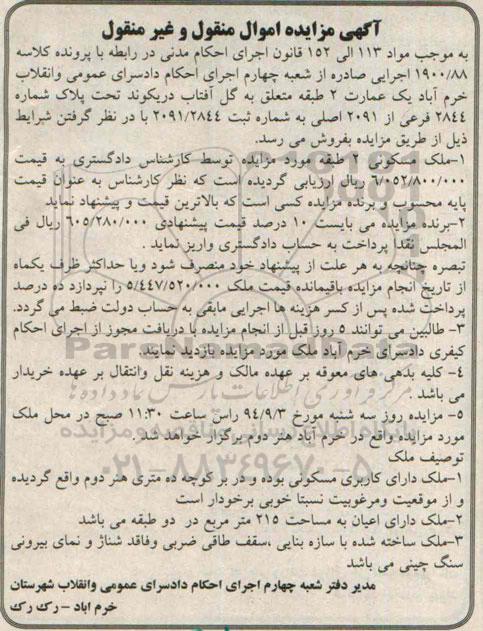 آگهی مزایده اموال منقول و غیر منقول
به موجب مواد ۱۱۳ الی ۱۵۲ قانون اجرای احکام مدنی در رابطه با پرونده کلاسه
۱۹۰۰/۸۸ اجرایی صادره از شعبه چهارم اجرای احکام دادسرای عمومی وانقلاب
خرم آباد یک عمارت ۲ طبقه متعلق به گل آفتاب دریکوند تحت پلاک شماره
۲۸۴۴ فرعی از ۲۰۹۱ اصلی به شماره ثبت ۲۰۹۱/۲۸۴۴ با در نظر گرفتن شرایط
ذیل از طریق مزایده بفروش می رسد.
۱-ملک مسکونی ۲ طبقه مورد مزایده توسط کارشناس دادگستری به قیمت
۶/۰۵۲/۸۰۰/۰۰۰ ریال ارزیابی گردیده است که نظر کارشناس به عنوان قیمت
پایه محسوب و برنده مزایده کسی است که بالاترین قیمت و پیشنهاد نماید
۲-برنده مزایده می بایست ۱۰ درصد قیمت پیشنهادی ۶۰۵/۲۸۰/۰۰۰ ریال فی
المجلس نقدا پرداخت به حساب دادگستری واریز نماید .
تبصره چنانچه به هر علت از پیشنهاد خود منصرف شود ویا حداکثر ظرف یکماه
از تاریخ انجام مزایده باقیمانده قیمت ملک ۵/۴۴۷/۵۲۰/۰۰۰ را نپردازد ده درصد
پرداخت شده پس از کسر هزینه ها اجرایی مابقی به حساب دولت ضبط می گردد.
۳- طالبین می توانند ۵ روز قبل از انجام مزایده با دریافت مجوز از اجرای احکام
کیفری دادسرای خرم آباد ملک مورد مزایده بازدید نمایند.
ParsNamadData
۴- کلیه بدهی های معوقه بر عهده مالک و هزینه نقل وانتقال بر عهده خریدار
می باشد .
۵- مزایده روز سه شنبه مورخ ۹۴/۹/۳ راس ساعت ۱۱:۳۰ صبح در محل ملک
مورد مزایده واقع در خرم آباد هنر دوم برگزار خواهد شد .
۰۲۱-۸۸۳۴۹۶۷۰-۵
توصیف ملک
۱-ملک دارای کاربری مسکونی بوده و در بر کوچه ده متری هنر دوم واقع گردیده
و از موقعیت ومرغوبیت نسبتا خوبی برخودار است
۲-ملک دارای اعیان به مساحت ۲۱۵ متر مربع در دو طبقه می باشد
۳-ملک ساخته شده با سازه بنایی ،سقف طاقی ضربی وفاقد شناژ و نمای بیرونی
سنگ چینی می باشد
مدیر دفتر شعبه چهارم اجرای احکام دادسرای عمومی وانقلاب شهرستان
خرم اباد - رک رک